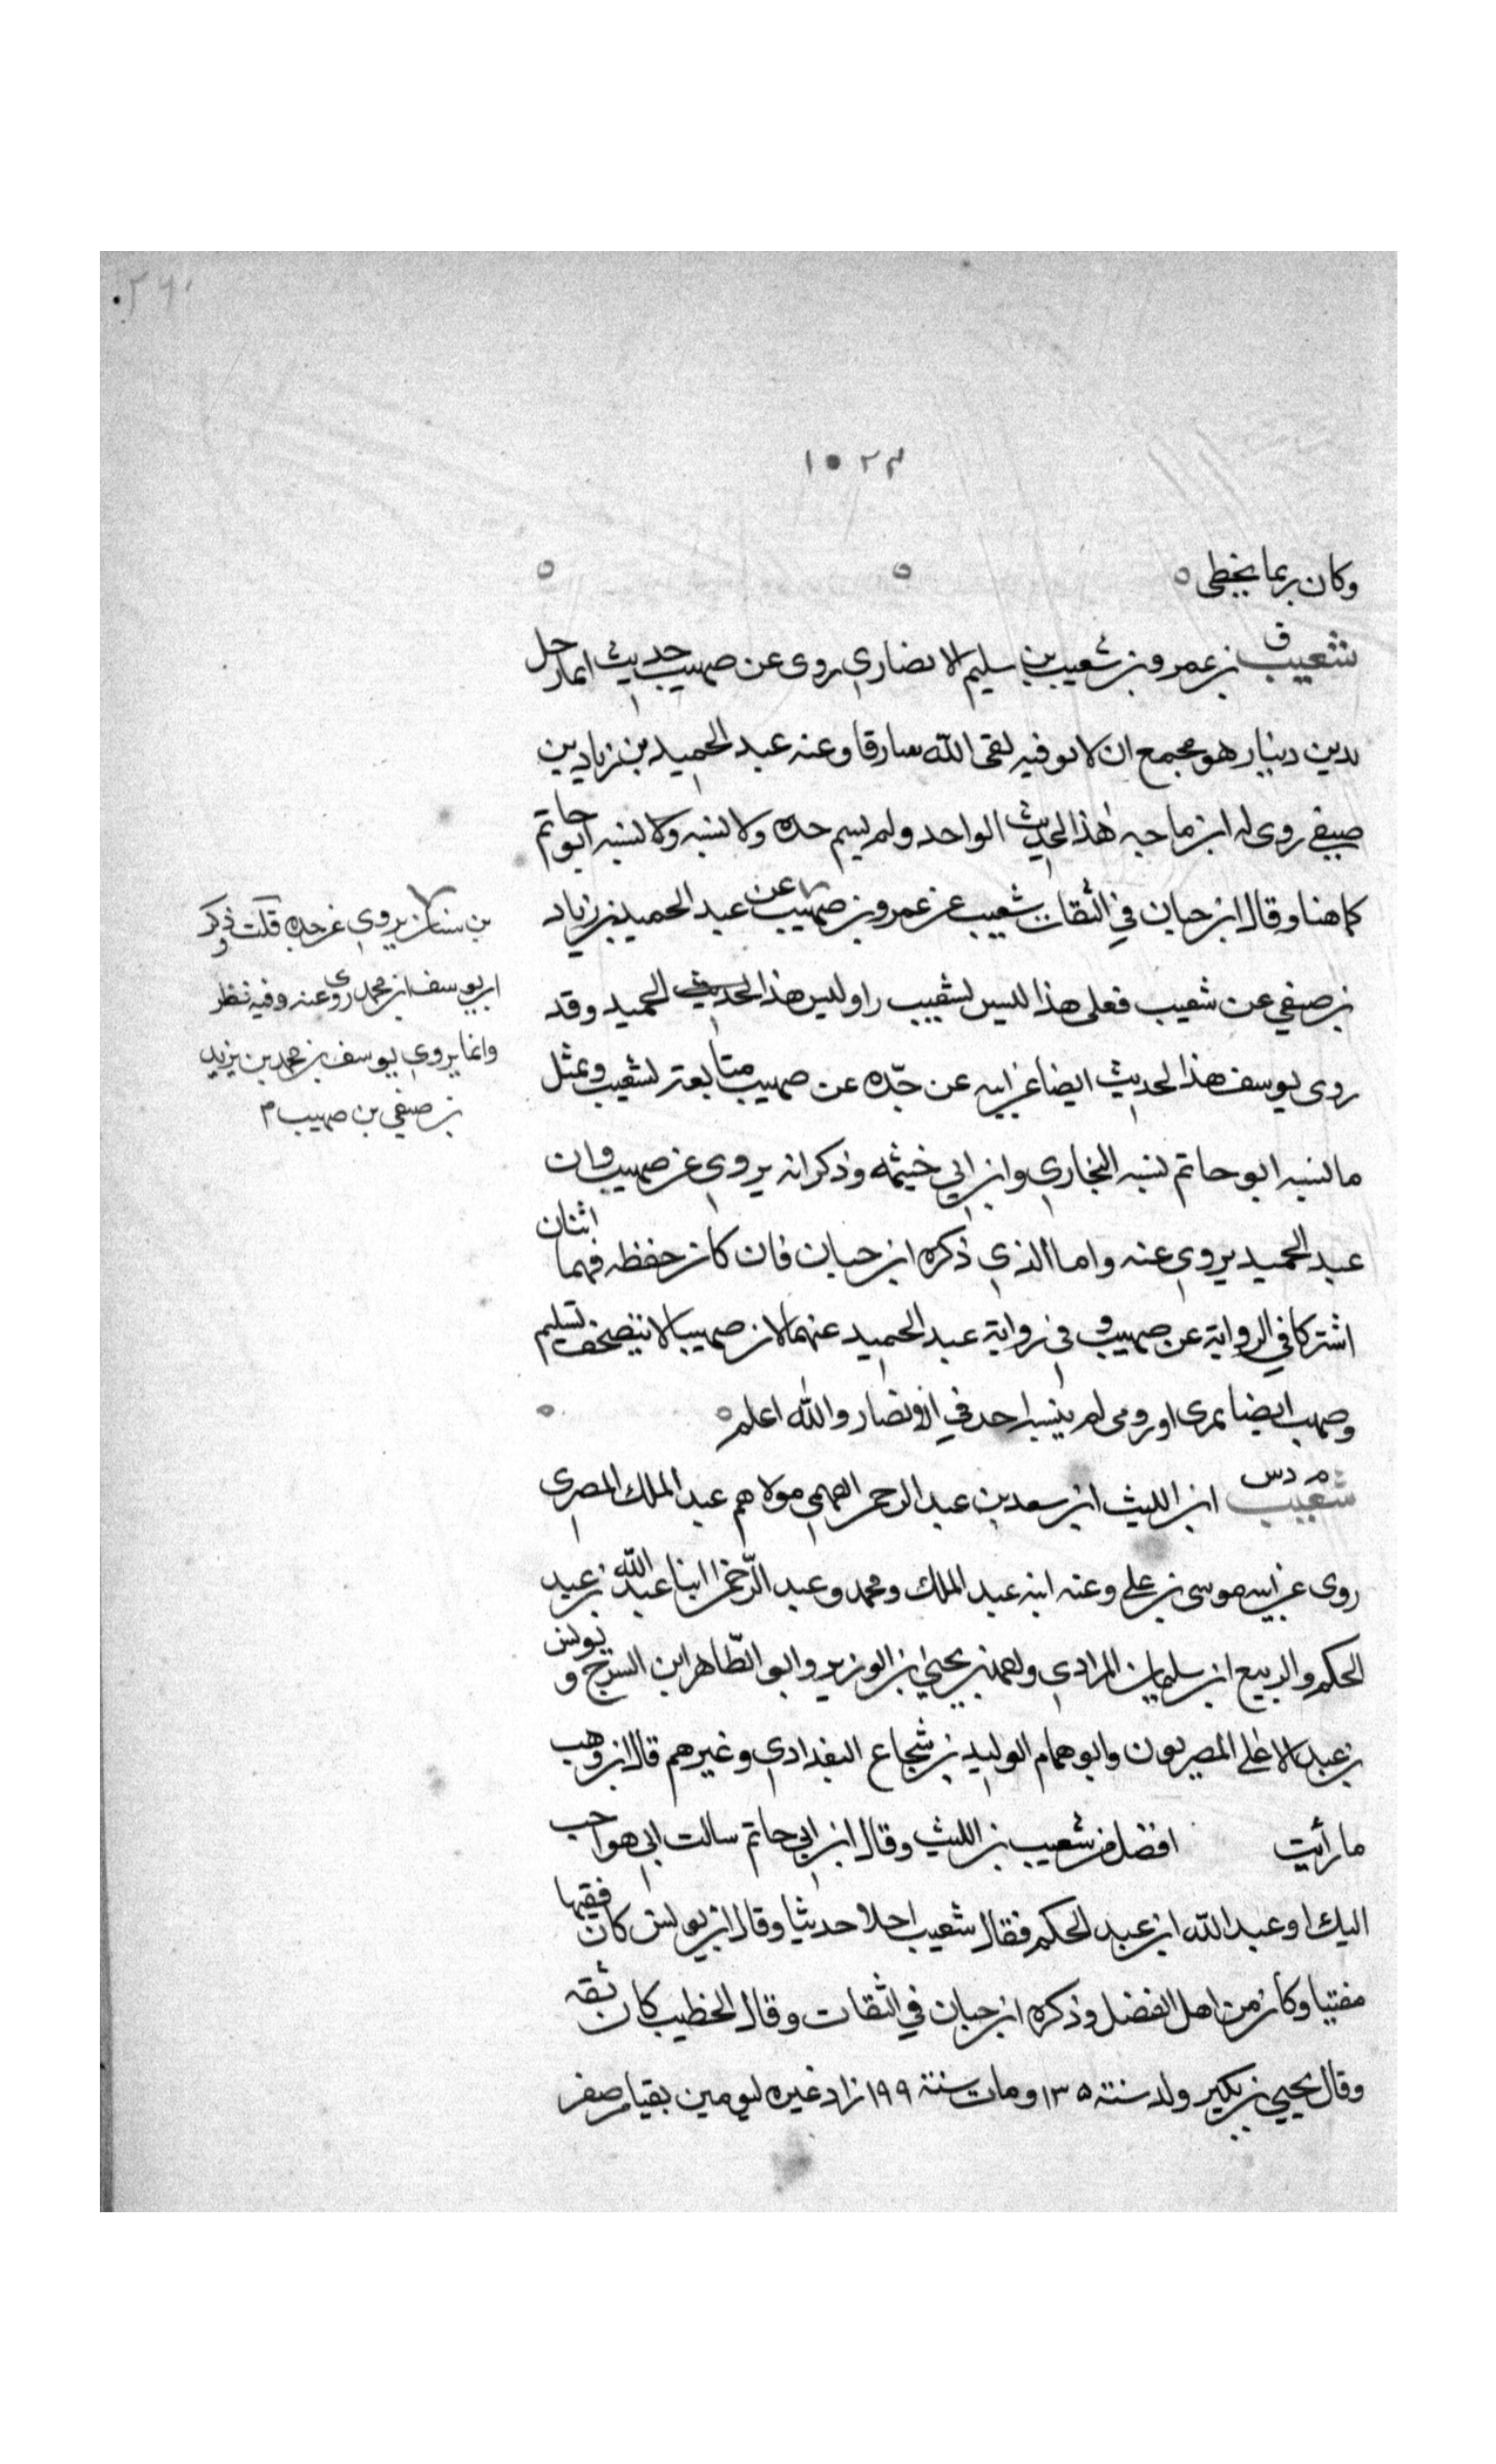 ١٠٢٣
وكان ربما يخطى
شعيب ق بن عمرو بن شعيب بن سليم الانصاري روى عن صهيب حديث ايما رجل
يدين دينار هو مجمع ان لا يوفيه لقى الله سارقا وعنه عبد الحميد بن زياد بن
صيفي روى له ابن ماجه هذا الحديث الواحد ولم يسم جده ولا نسبه ولا نسبه ابو حاتم
كما هنا وقال ابن حبان في الثقات شعيب عن عمرو بن صهيب عن عبد الحميد بن زياد
بن صيفي عن شعيب فعلى هذا لليس لشعيب راو وليس هذا الحديث الحميد وقد
روى يوسف هذا الحديث ايضا عن ابيه عن جده عن صهيب متابعة لشعيب وبمثل
ما نسبه ابو حاتم نسبه البخاري وابن ابي خيثمه وذكر انه يروي عن صهيب وان
عبد الحميد يروي عنه واما الذي ذكره ابن حبان فان كان حفظه فهما اثنان
اشتركا في الرواية عن صهيب وفي رواية عبد الحميد عنهما لان صهيبا لا يتصحف بسليم
وصهيب ايضا نمري او رومى لم ينسبه احد في الانصار والله اعلم
شعيب م د س ابن الليث ابن سعد بن عبد الرحمن الفهمي مولاهم عبد الملك المصري
روى عن ابيه موسى بن علي وعنه ابنه عبد الملك ومحمد وعبد الرحمن ابنا عبد الله بن عبد
الحكم والربيع ابن سليمان المرادي واحمد بن يحيى بن الوزير وابو الطاهر ابن السرح ويونس
بن عبد الاعلى المصريون وابو همام الوليد بن شجاع البغدادي وغيرهم قال ابن وهب
ما رأيت افضل من شعيب بن الليث وقال ابن ابي حاتم سالت ابي هو احب
اليك او عبد الله ابن عبد الحكم فقال شعيب احلا حديثا وقال ابن يونس كان فقيها
مفتيا وكان من اهل الفضل وذكره ابن حبان في الثقات وقال الخطيب كان ثقه
وقال يحيى بن بكير ولد سنة ١٣٥ ومات سنة ١٩٩ زاد غيره ليومين بقيا من صفر
بن سنان يروي عن جده قلت ذكر
ان يوسف ابن محمد روى عنه وفيه نظر
وانما يروي يوسف بن محمد بن يزيد
بن صيفي بن صهيب م